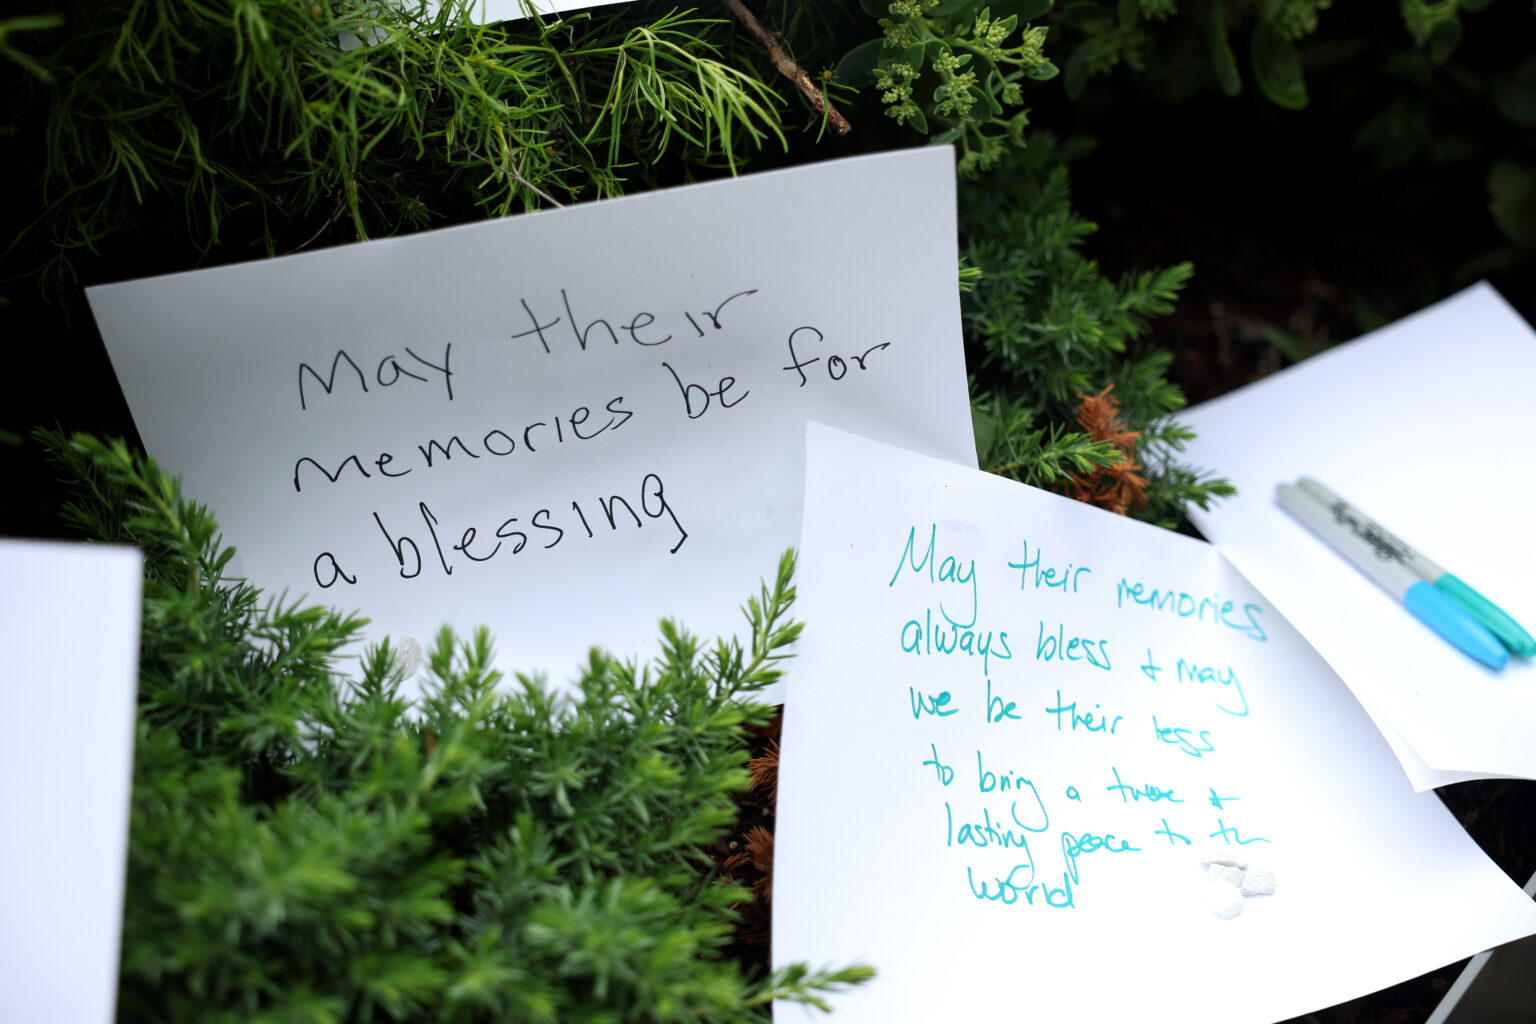 May their
memories be for
a blessing
May their memories
always bless & may
we be their
to bring a &
lasting peace to
world
Sharpie